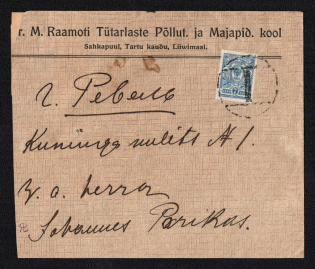 r. M. Raamoti Tütarlaste Põllut. ja Majapid. kool
Sahkapuul, Tartu kaudu, Liiwimaal.
г. Ревель
Kuninga uulits № 1.
w. a. herra
Johannes Parikas.